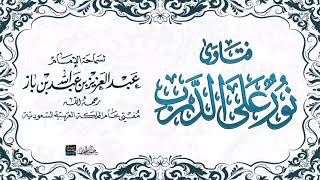 فتاوى
نور على الدرب
لسماحة الإمام
عبد العزيز بن عبد الله بن باز
رحمه الله
مفتي عام المملكة العربية السعودية